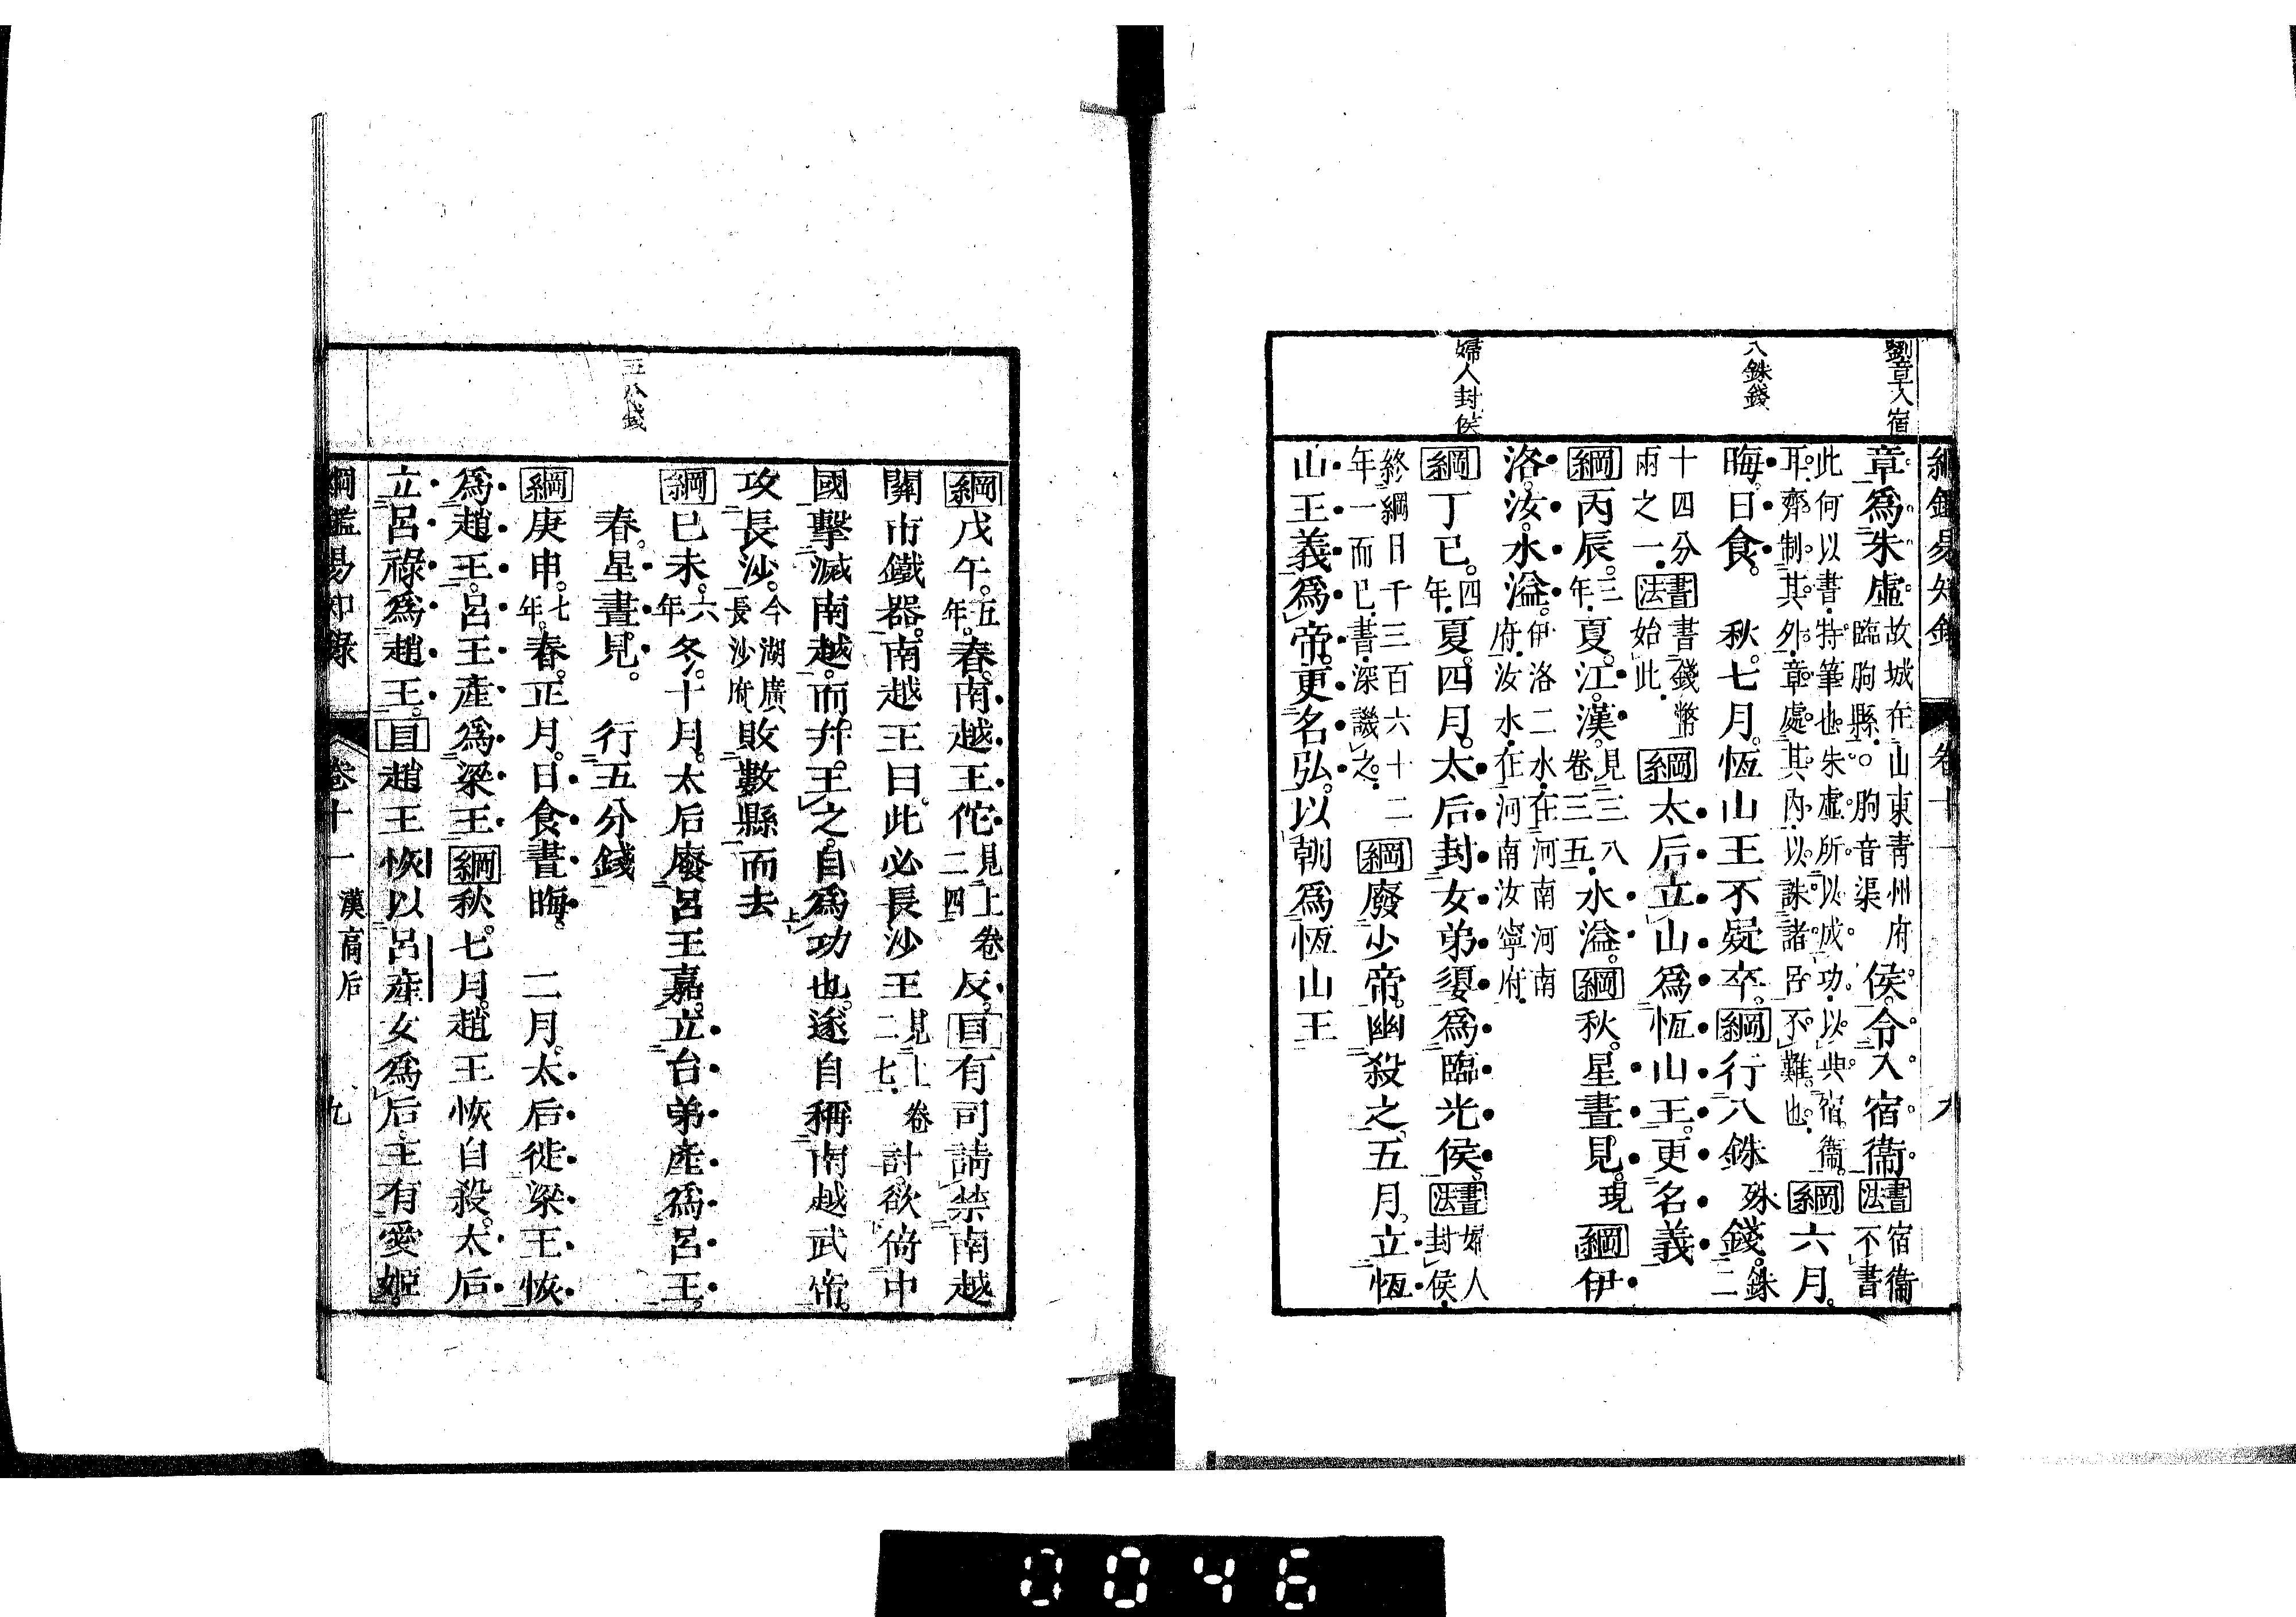 綱鑑易知錄 卷十一 九
劉章入宿
八銖錢
婦人封侯
章爲朱虛故城在山東青州府臨朐縣。朐音渠侯。令入宿衞書法宿衞不書
此何以書。特筆也。朱虛所以成功。以典宿衞。耳。齊制其外。章處其內。以誅諸呂不難也。綱六月。
晦。日食。 秋。七月。恆山王不疑卒。綱行八銖殊錢。銖二
十四分兩之一。書法書錢幣始此。綱太后立山爲恆山王。更名義
綱丙辰。三年。夏。江。漢。見三八卷三五。水溢。綱秋。星晝見。現綱伊
洛。汝。水溢。伊洛二水。在河南河南府。汝水。在河南汝寧府。
綱丁巳。四年。夏。四月。太后封女弟嬃爲臨光侯。書法婦人封侯。
終綱目千三百六十二年一而已。書。深譏之。綱廢少帝。幽殺之。五月。立恆
山王義爲帝。更名弘。以朝爲恆山王
五分錢
綱戊午。五年。春。南越王佗見上卷二四反。目有司請禁南越
關市鐵器。南越王曰。此必長沙王見上卷二七。計。欲倚中
國擊滅南越。而幷王之。自爲功也。遂自稱南越武帝。
攻長沙。今湖廣長沙府。敗數縣而去
綱己未。六年冬。十月。太后廢呂王嘉。立台弟產爲呂王。
春。星晝見。 行五分錢
綱庚申。七年。春。正月。日食晝晦。 二月。太后徙梁王恢
爲趙王。呂王產爲梁王。綱秋。七月。趙王恢自殺。太后
立呂祿爲趙王。目趙王恢以呂產女爲后。王有愛姬。
綱鑑易知錄 卷十一 漢高后 九
0046